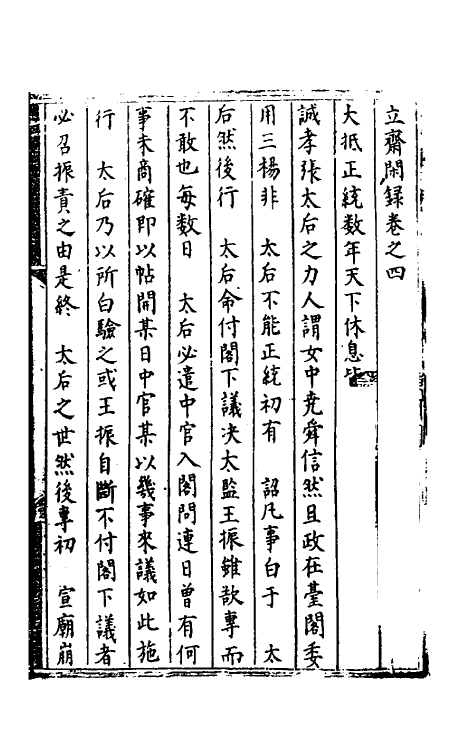 立齋閑録卷之四
大抵正統数年天下休息皆
誠孝張太后之力人謂女中尭舜信然且政在臺閣委
用三楊非　太后不能正統初有　詔凡事白于　太
后然後行　太后命付閣下議决太監王振雖欲専而
不敢也每数日　太后必遣中官入閣問連日曾有何
事来商確即以帖開某日中官某以幾事來議如此施
行　太后乃以所白驗之或王振自斷不付閣下議者
必召振責之由是終　太后之世然後専初　宣廟崩